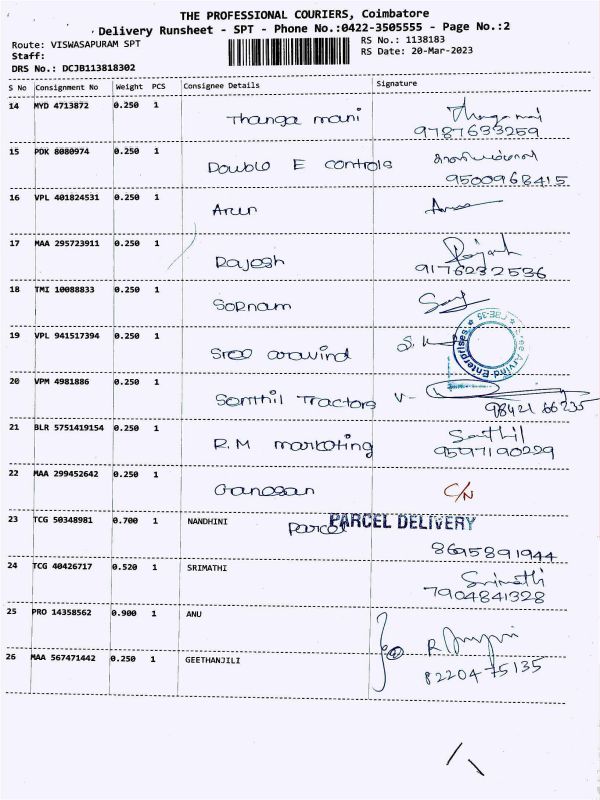 THE PROFESSIONAL COURIERS, Coimbatore
Delivery Runsheet - SPT - Phone No.:0422-3505555 - Page No.:2
Route: VISWASAPURAM SPT RS No.: 1138183
Staff: RS Date: 20-Mar-2023
DRS No.: DCJB113818302
S No Consignment No Weight PCS Consignee Details Signature
14 MYD 4713872 0.250 1 Thanga mani Thangamani
9787633259
15 PDK 8080974 0.250 1 Double E controls
9500968415
16 VPL 401824531 0.250 1 Arun
17 MAA 295723911 0.250 1 Rajesh Rajesh
9176232536
18 TMI 10088833 0.250 1 Sornam
19 VPL 941517394 0.250 1 Sree aravind S. K
Sree Arvind Enterprises CBE-35
20 VPM 4981886 0.250 1 Senthil Tractors V-
98421 66235
21 BLR 5751419154 0.250 1 R.M marketing Senthil
9597190229
22 MAA 299452642 0.250 1 Ganesan C/N
23 TCG 50348981 0.700 1 NANDHINI Parcel PARCEL DELIVERY
8695891944
24 TCG 40426717 0.520 1 SRIMATHI Srimathi
7904841328
25 PRO 14358562 0.900 1 ANU
26 MAA 567471442 0.250 1 GEETHANJILI 8220475135